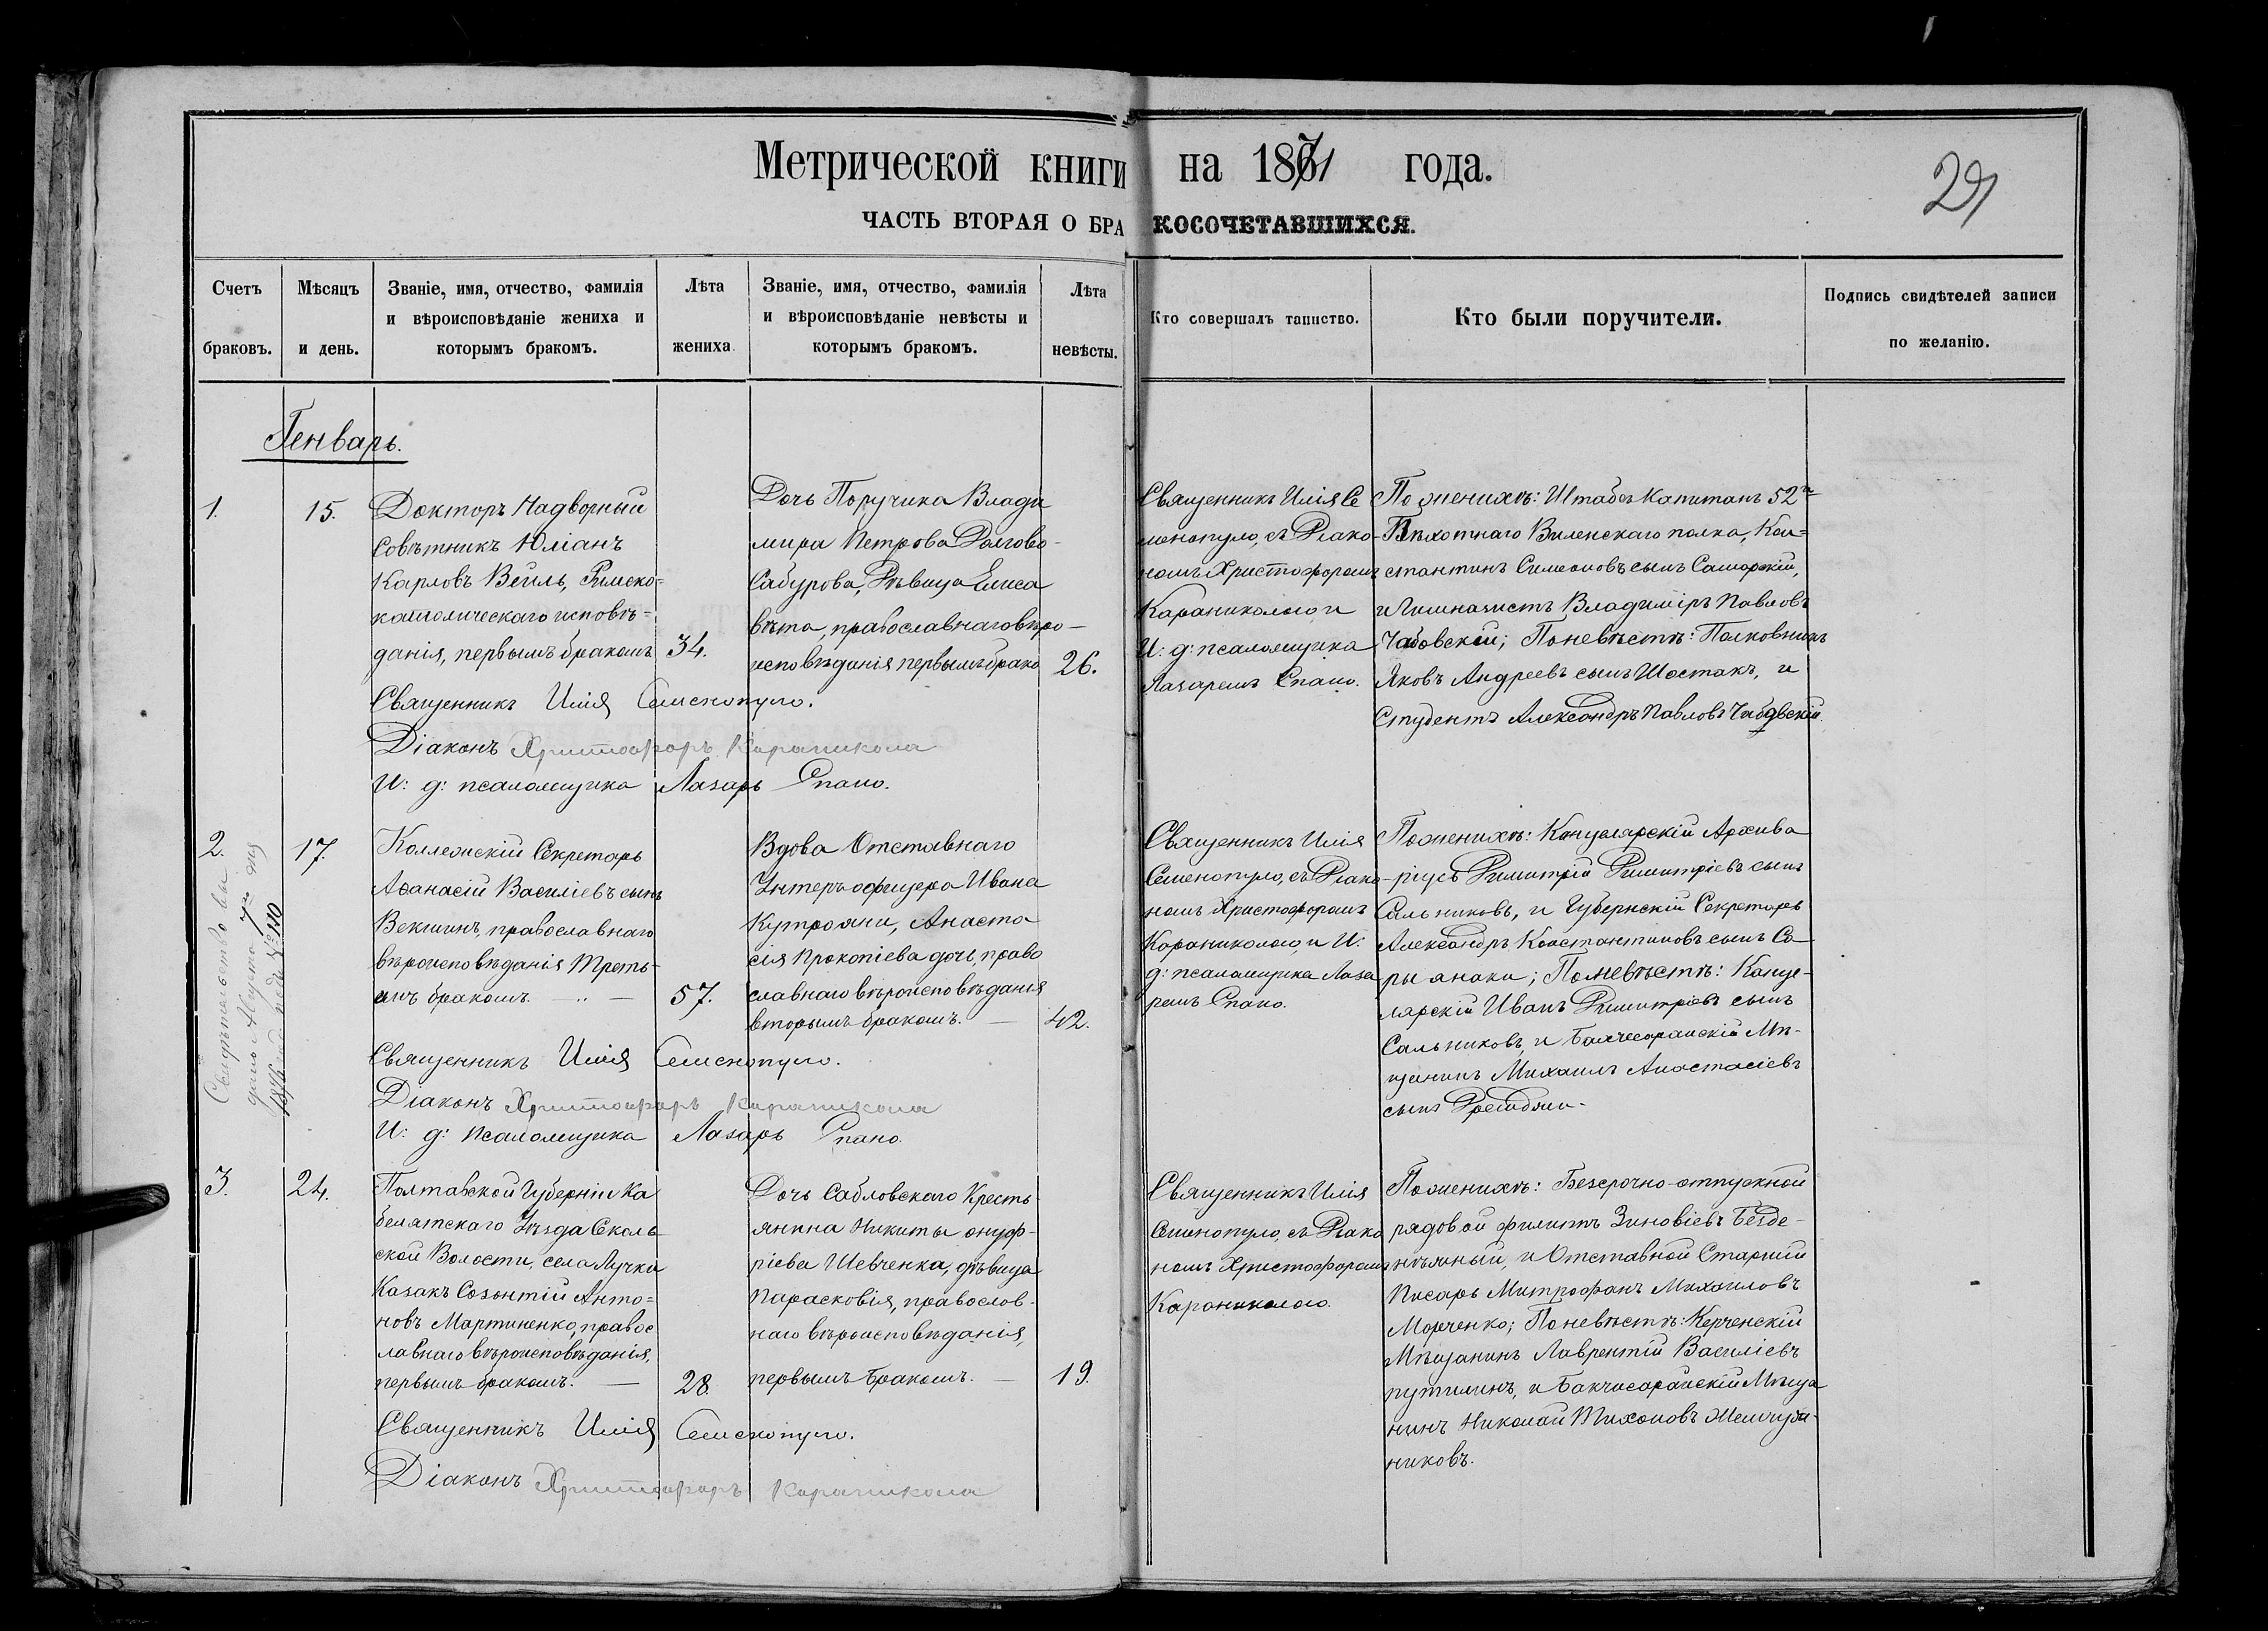 Метрической книги на 1871 года.
29
ЧАСТЬ ВТОРАЯ О БРАКОСОЧЕТАВШИХСЯ.
Счетъ браковъ.
Мѣсяцъ и день.
Званіе, имя, отчество, фамилія
и вѣроисповѣданіе жениха и
которымъ бракомъ.
Лѣта жениха
Званіе, имя, отчество, фамилія
и вѣроисповѣданіе невѣсты и
которымъ бракомъ.
Лѣта невѣсты.
Кто совершалъ таинство.
Кто были поручители.
Подпись свидѣтелей записи
по желанію.
Генварь.
1.
15.
Докторъ Надворный
Совѣтникъ Юліанъ
Карловъ Вейль, Римско-
католическаго исповѣ-
данія, первымъ бракомъ
34.
Дочь Поручика Влади
мира Петрова Долгово-
Сабурова, Дѣвица Елиса
вѣта, православнаго вѣро-
исповѣданія первымъ брако
26.
Священникъ Илія Се
менопуло, съ Діако-
номъ Христофоромъ
Караниколою и
И: д: псаломщика
Лазаремъ Спано.
По женихѣ: Штабсъ Капитанъ 52го
Пѣхотнаго Виленскаго полка, Кон-
стантинъ Симеоновъ сынъ Самарскій,
и Гимназистъ Владиміръ Павловъ
Чабовскій; По невѣстѣ: Полковникъ
Яковъ Андреевъ сынъ Шостакъ, и
Студентъ Александръ Павловъ Чабовскій.
Священникъ Илія Семенопуло.
Діаконъ Христофоръ Караникола
И: д: псаломщика Лазарь Спано.
2.
17.
Свидѣтельство вы
дано Августа 7го дня
1876 года подъ № 110
Коллежскій Секретарь
Аѳанасій Василіевъ сынъ
Векшинъ, православнаго
вѣроисповѣданія треть-
имъ бракомъ.
57.
Вдова Отставнаго
Унтеръ офицера Ивана
Кутрояни, Анаста
сія Прокопіева дочь, право
славнаго вѣроисповѣданія
вторымъ бракомъ.
42.
Священникъ Илія
Семенопуло, съ Діако
номъ Христофоромъ
Караниколою, и И:
д: псаломщика Лаза
ремъ Спано.
По женихѣ: Канцелярскій Архива
ріусъ Димитрій Димитріевъ сынъ
Сальниковъ, и Губернскій Секретарь
Александръ Константиновъ сынъ Са-
рыянаки; По невѣстѣ: Канце-
лярскій Иванъ Димитріевъ сынъ
Сальниковъ, и Бахчесарайскій Мѣ-
щанинъ Михаилъ Анастасіевъ
сынъ
Священникъ Илія Семенопуло.
Діаконъ Христофоръ Караникола
И: д: Псаломщика Лазарь Спано.
3.
24.
Полтавской Губерніи Ка
белятскаго Уѣзда Сколь-
ской Волости, села Лучки
Казакъ Созонтій Анто-
новъ Мартиненко, правос
лавнаго вѣроисповѣданія,
первымъ бракомъ.
28.
Дочь Сабловскаго Кресть
янина Никиты онуф-
ріева Шевченка, дѣвица
Парасковія, православ-
наго вѣроисповѣданія,
первымъ бракомъ.
19.
Священникъ Илія
Семенопуло, съ Діако
номъ Христофоромъ
Караниколою.
По женихѣ: Безсрочно-отпускной
рядовой филипъ Зиновіевъ Безде-
нѣжный, и Отставной Старшій
Писарь Митрофанъ Михаиловъ
Марченко; По невѣстѣ: Керченскій
Мѣщанинъ Лаврентій Василіевъ
путилинъ, и Бахчисарайскій Мѣща
нинъ Николай Тихоновъ Жемчуж-
никовъ.
Священникъ Илія Семенопуло.
Діаконъ Христофоръ Караникола